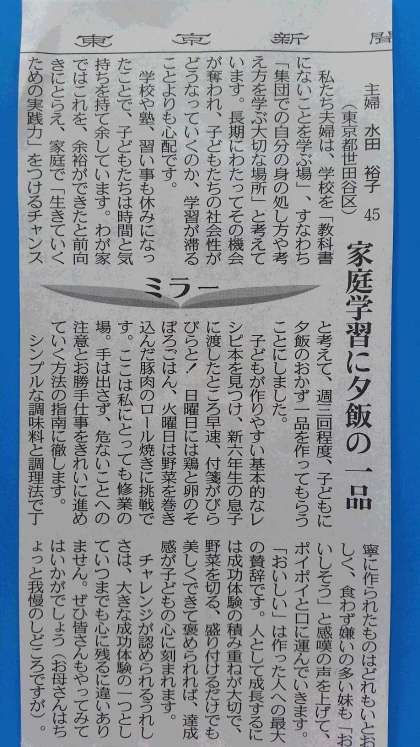 東京新聞
家庭学習に夕飯の一品
主婦 水田 裕子 45
(東京都世田谷区)
ミラー
私たち夫婦は、学校を「教科書
にないことを学ぶ場」、すなわち
「集団での自分の身の処し方や考
え方を学ぶ大切な場所」と考えて
います。長期にわたってその機会
が奪われ、子どもたちの社会性が
どうなっていくのか、学習が滞る
ことよりも心配です。
学校や塾、習い事も休みになっ
たことで、子どもたちは時間と気
持ちを持て余しています。わが家
ではこれを、余裕ができたと前向
きにとらえ、家庭で「生きていく
ための実践力」をつけるチャンス
と考えて、週三回程度、子どもに
夕飯のおかず一品を作ってもらう
ことにしました。
子どもが作りやすい基本的なレ
シピ本を見つけ、新六年生の息子
に渡したところ早速、付箋がびら
びらと!日曜日には鶏と卵のそ
ぼろごはん、火曜日は野菜を巻き
込んだ豚肉のロール焼きに挑戦で
す。ここは私にとっても修業の
場。手は出さず、危ないことへの
注意とお勝手仕事をきれいに進め
ていく方法の指南に徹します。
シンプルな調味料と調理法で丁
寧に作られたものはどれもいとお
しく、食わず嫌いの多い妹も「お
いしそう」と感嘆の声を上げて、
ポイポイと口に運んでいきます。
「おいしい」は作った人への最大
の賛辞です。人として成長するに
は成功体験の積み重ねが大切で、
野菜を切る、盛り付けるだけでも
美しくできて褒められれば、達成
感が子どもの心に刻まれます。
チャレンジが認められるうれし
さは、大きな成功体験の一つとし
ていつまでも心に残るに違いあり
ません。ぜひ皆さんもやってみて
はいかがでしょう(お母さんはち
ょっと我慢のしどころですが)。